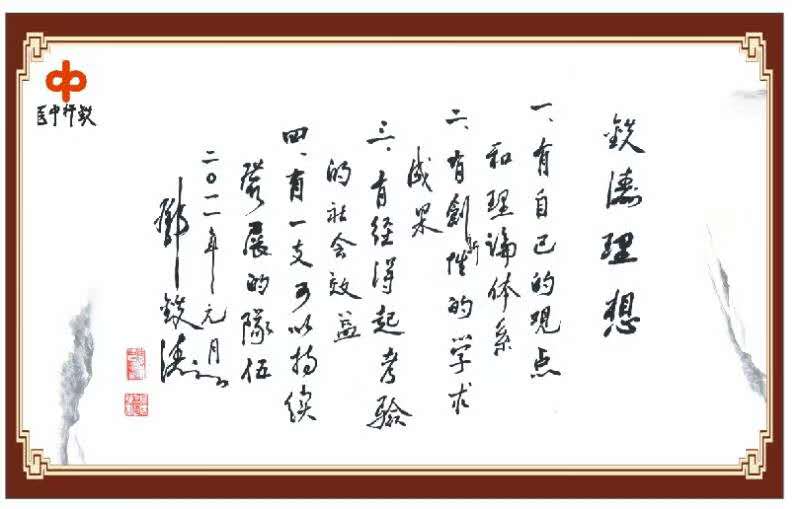 鉄杆中医
鉄涛理想
一、有自己的观点
和理论体系
二、有創新性的学术
成果
三、有经得起考验
的社会效益
四、有一支可以持续
發展的隊伍
二〇一一年元月
鄧鉄涛